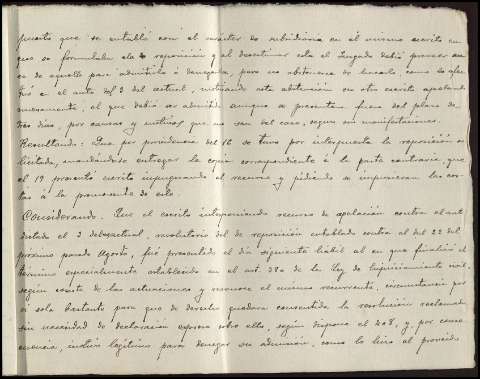 puesto que se entabló con el carácter de subsidiaria en el mismo escrito en
que se formulaba de reposición y al desestimar esta el Juzgado debió proveer acer-
ca de aquella para admitirla ó denegarla, pero no abstenerse de hacerlo, como lo efec-
tuó en el auto del 3 del actual, motivando esta abstención su otro escrito apelando
nuevamente, el que debió ser admitido aunque se presentara fuera del plazo de
tres días, por causas y motivos que no son del caso, según sus manifestaciones.
Resultando: Que por providencia del 16 se tuvo por interpuesta la reposición so-
licitada, mandándose entregar la copia correspondiente á la parte contraria, que
el 19 presentó escrito impugnando el recurso y pidiendo se impusieran las cos-
tas á la promovente de este.
Considerando: Que el escrito interponiendo recurso de apelación contra el auto
dictado el 3 del actual, resolutorio del de reposición entablado contra el del 22 del
próximo pasado Agosto, fué presentado el día siguiente hábil al en que finalizó el
término especialmente establecido en el art. 380 de la Ley de Enjuiciamiento civil,
según consta de las actuaciones y reconoce el mismo recurrente, circunstancia por
sí sola bastante para que de derecho quedara consentida la resolución reclamada
sin necesidad de declaración expresa sobre ello, según dispone el 408, y, por conse-
cuencia, motivo legítimo para denegar su admisión, como lo hizo el proveído